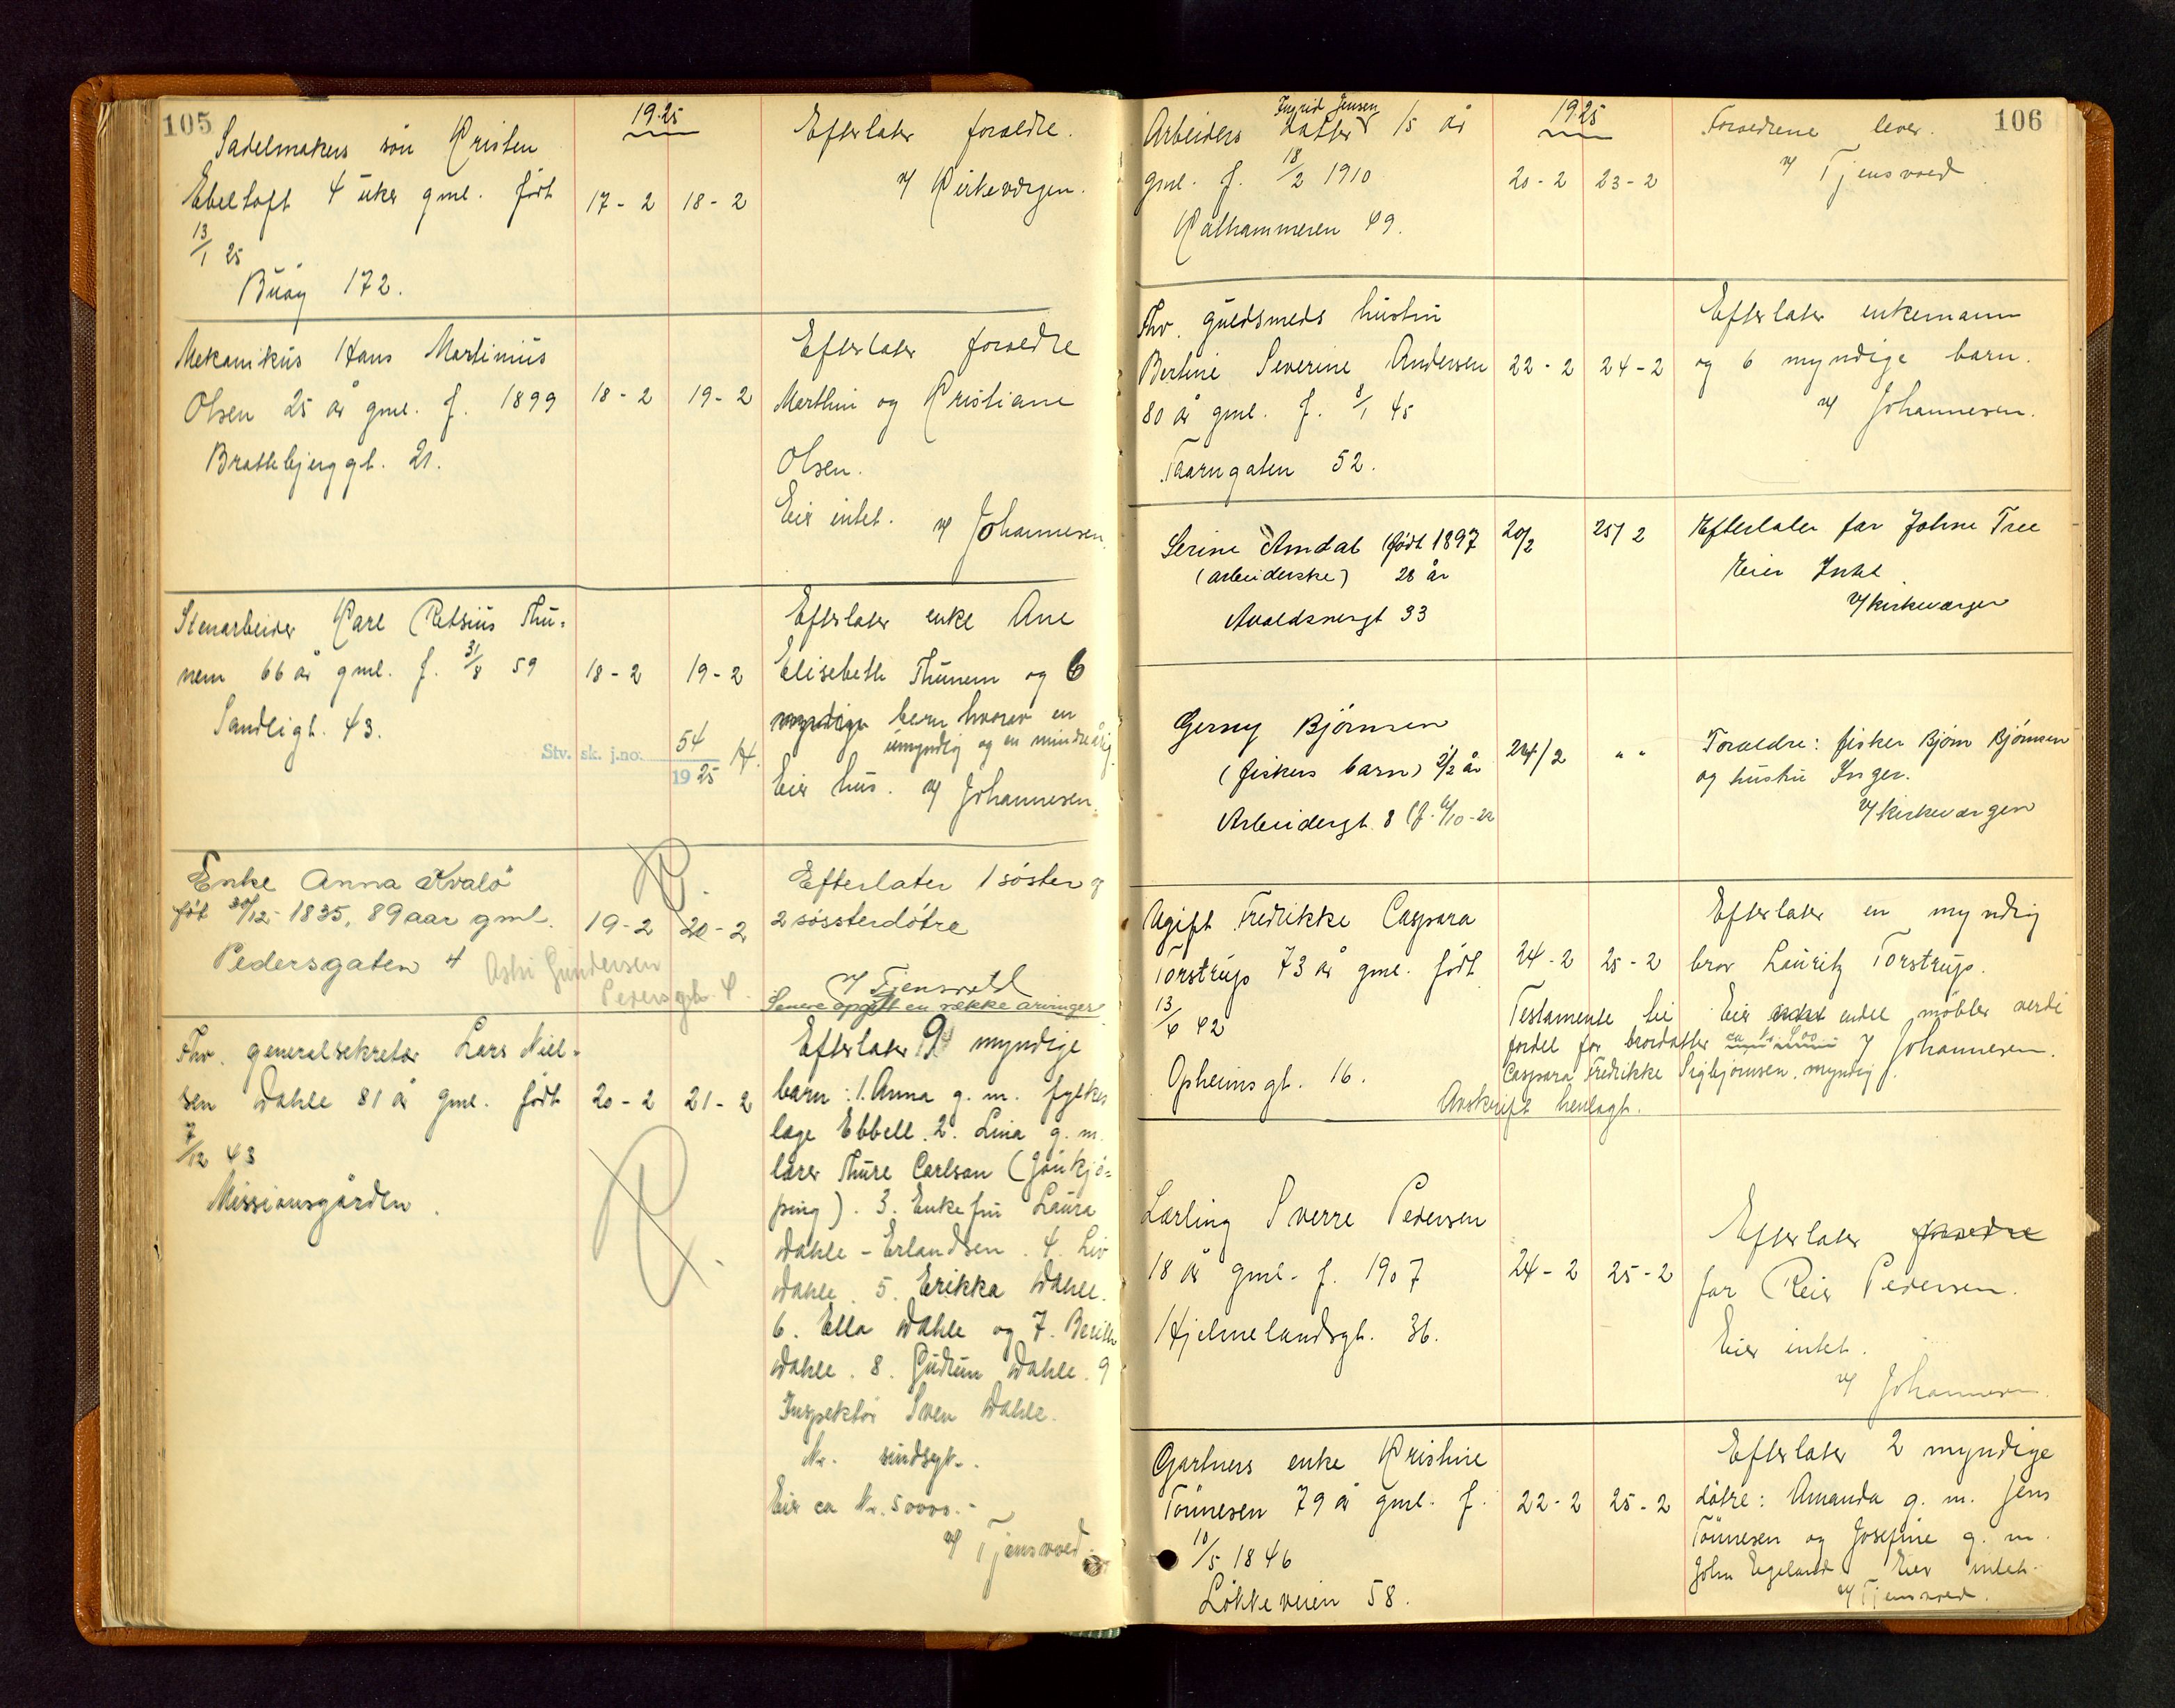 105
1925
Sadelmakers søn Kristen
Ebeltoft 4 uker gml. født
13/1 25
Buøy 172.
17-2 18-2
Efterlater forældre.
v/ Kirkevergen.
Mekanikus Hans Martinius
Olsen 25 år gml. f. 1899
Brattebjerggt. 21.
18-2 19-2
Efterlater forældre
Marthin og Kristiane
Olsen.
Eier intet. v/ Johannesen.
Stenarbeider Karl Retsius Thu-
nem 66 år gml. f. 31/8 59
Sandligt. 43.
18-2 19-2
Stv. sk. j.no. 54/1925 H.
Efterlater enke Ane
Elisebeth Thunem og 6
myndige barn hvorav en
umyndig og en mindreårig.
Eier hus. v/ Johannesen.
Enke Anna Kvalø
føt 30/12-1835, 89 aar gml.
Pedersgaten 4
Astri Gundersen
Pedersgt. 4.
19-2 20-2
Efterlater 1 søster og
2 søssterdøtre
v/ Tjensvold
Senere opgitt en række arvinger
Fhv. generalsekretær Lars Niel-
sen Dahle 81 år gml. født
7/12 43
Missionsgården.
20-2 21-2
Efterlater 9 myndige
barn: 1. Anna g. m. fylkes
læge Ebbell. 2. Lina g. m.
lærer Thure Carlson (Jønkjø-
ping). 3. Enkefru Laura
Dahle-Erlandsen. 4. Liv
Dahle. 5. Erikka Dahle.
6. Ella Dahle og 7. Berith
Dahle. 8. Gudrun Dahle. 9
Inspektør Sven Dahle.
Nr. sindsyk.
Eier ca Kr. 50000.-
v/ Tjensvold.
106
1925
Ingrid Jensen
Arbeiders datter 15 år
gml. f. 18/2 1910
Kalhammeren 49.
20-2 23-2
Forældrene lever.
v/ Tjensvold
Fhv. guldsmeds hustru
Bertine Severine Andersen
80 år gml. f. 8/1 45
Taarngaten 52.
22-2 24-2
Efterlater enkemann
og 6 myndige barn.
v/ Johannesen.
Serine Amdal (født 1897
(arbeiderske) 28 år
Avaldsnesgt 33
20/2 25/2
Efterlater far Johne Tree
Eier Intet.
v/ kirkeværgen
Gerny Bjørnsen
(fiskers barn) 2 1/2 år
Arbeidergt. 8 (f. 6/10-22
24/2 " "
Foraldre: fisker Bjørn Bjørnsen
og hustru Inger.
v/ kirkeværgen
Ugift Fredrikke Caspara
Torstrup 73 år gml. født
13/6 42
Opheimsgt. 16.
24-2 25-2
Efterlater en myndig
bror Lauritz Torstrup.
Eier endel møbler verdi
ca kr. 400 v/ Johannesen.
Testamente til
fordel for brordatter
Caspara Fredrikke Sigbjørnsen, myndig.
Avskrift henlagt.
Lærling Sverre Pedersen
18 år gml. f. 1907
Hjelmelandsgt. 36.
24-2 25-2
Efterlater forældre
far Reier Pedersen.
Eier intet.
v/ Johannesen.
Gartners enke Kristine
Tønnesen 79 år gml. f.
10/5 1846
Løkkeveien 58.
22-2 25-2
Efterlater 2 myndige
døtre: Amanda g. m. Jens
Tønnesen og Josefine g. m.
John Egeland Eier intet.
v/ Tjensvold.